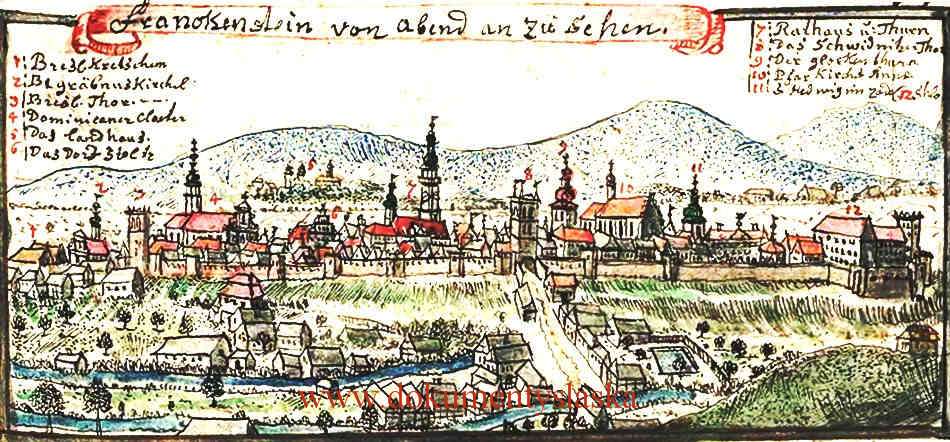 Franckenstein von Abend an zu sehen.
1: Bresl. Kretschem
2: Begräbnus Kirchel
3 Bresl. Thor.
4 Dominicaner Closter
5 Das Landhaus.
6 Das Dorf Stoltz
7: Rathaus u. Thurn
8 Das Schwidnitzer Thor
9: Der glocken thurn
10: Pfar Kirche
11 S Hedwig im 12 Schlo
1
2
3
4
5
6
7
8
9
10
11
12
www.dokumentyslaska